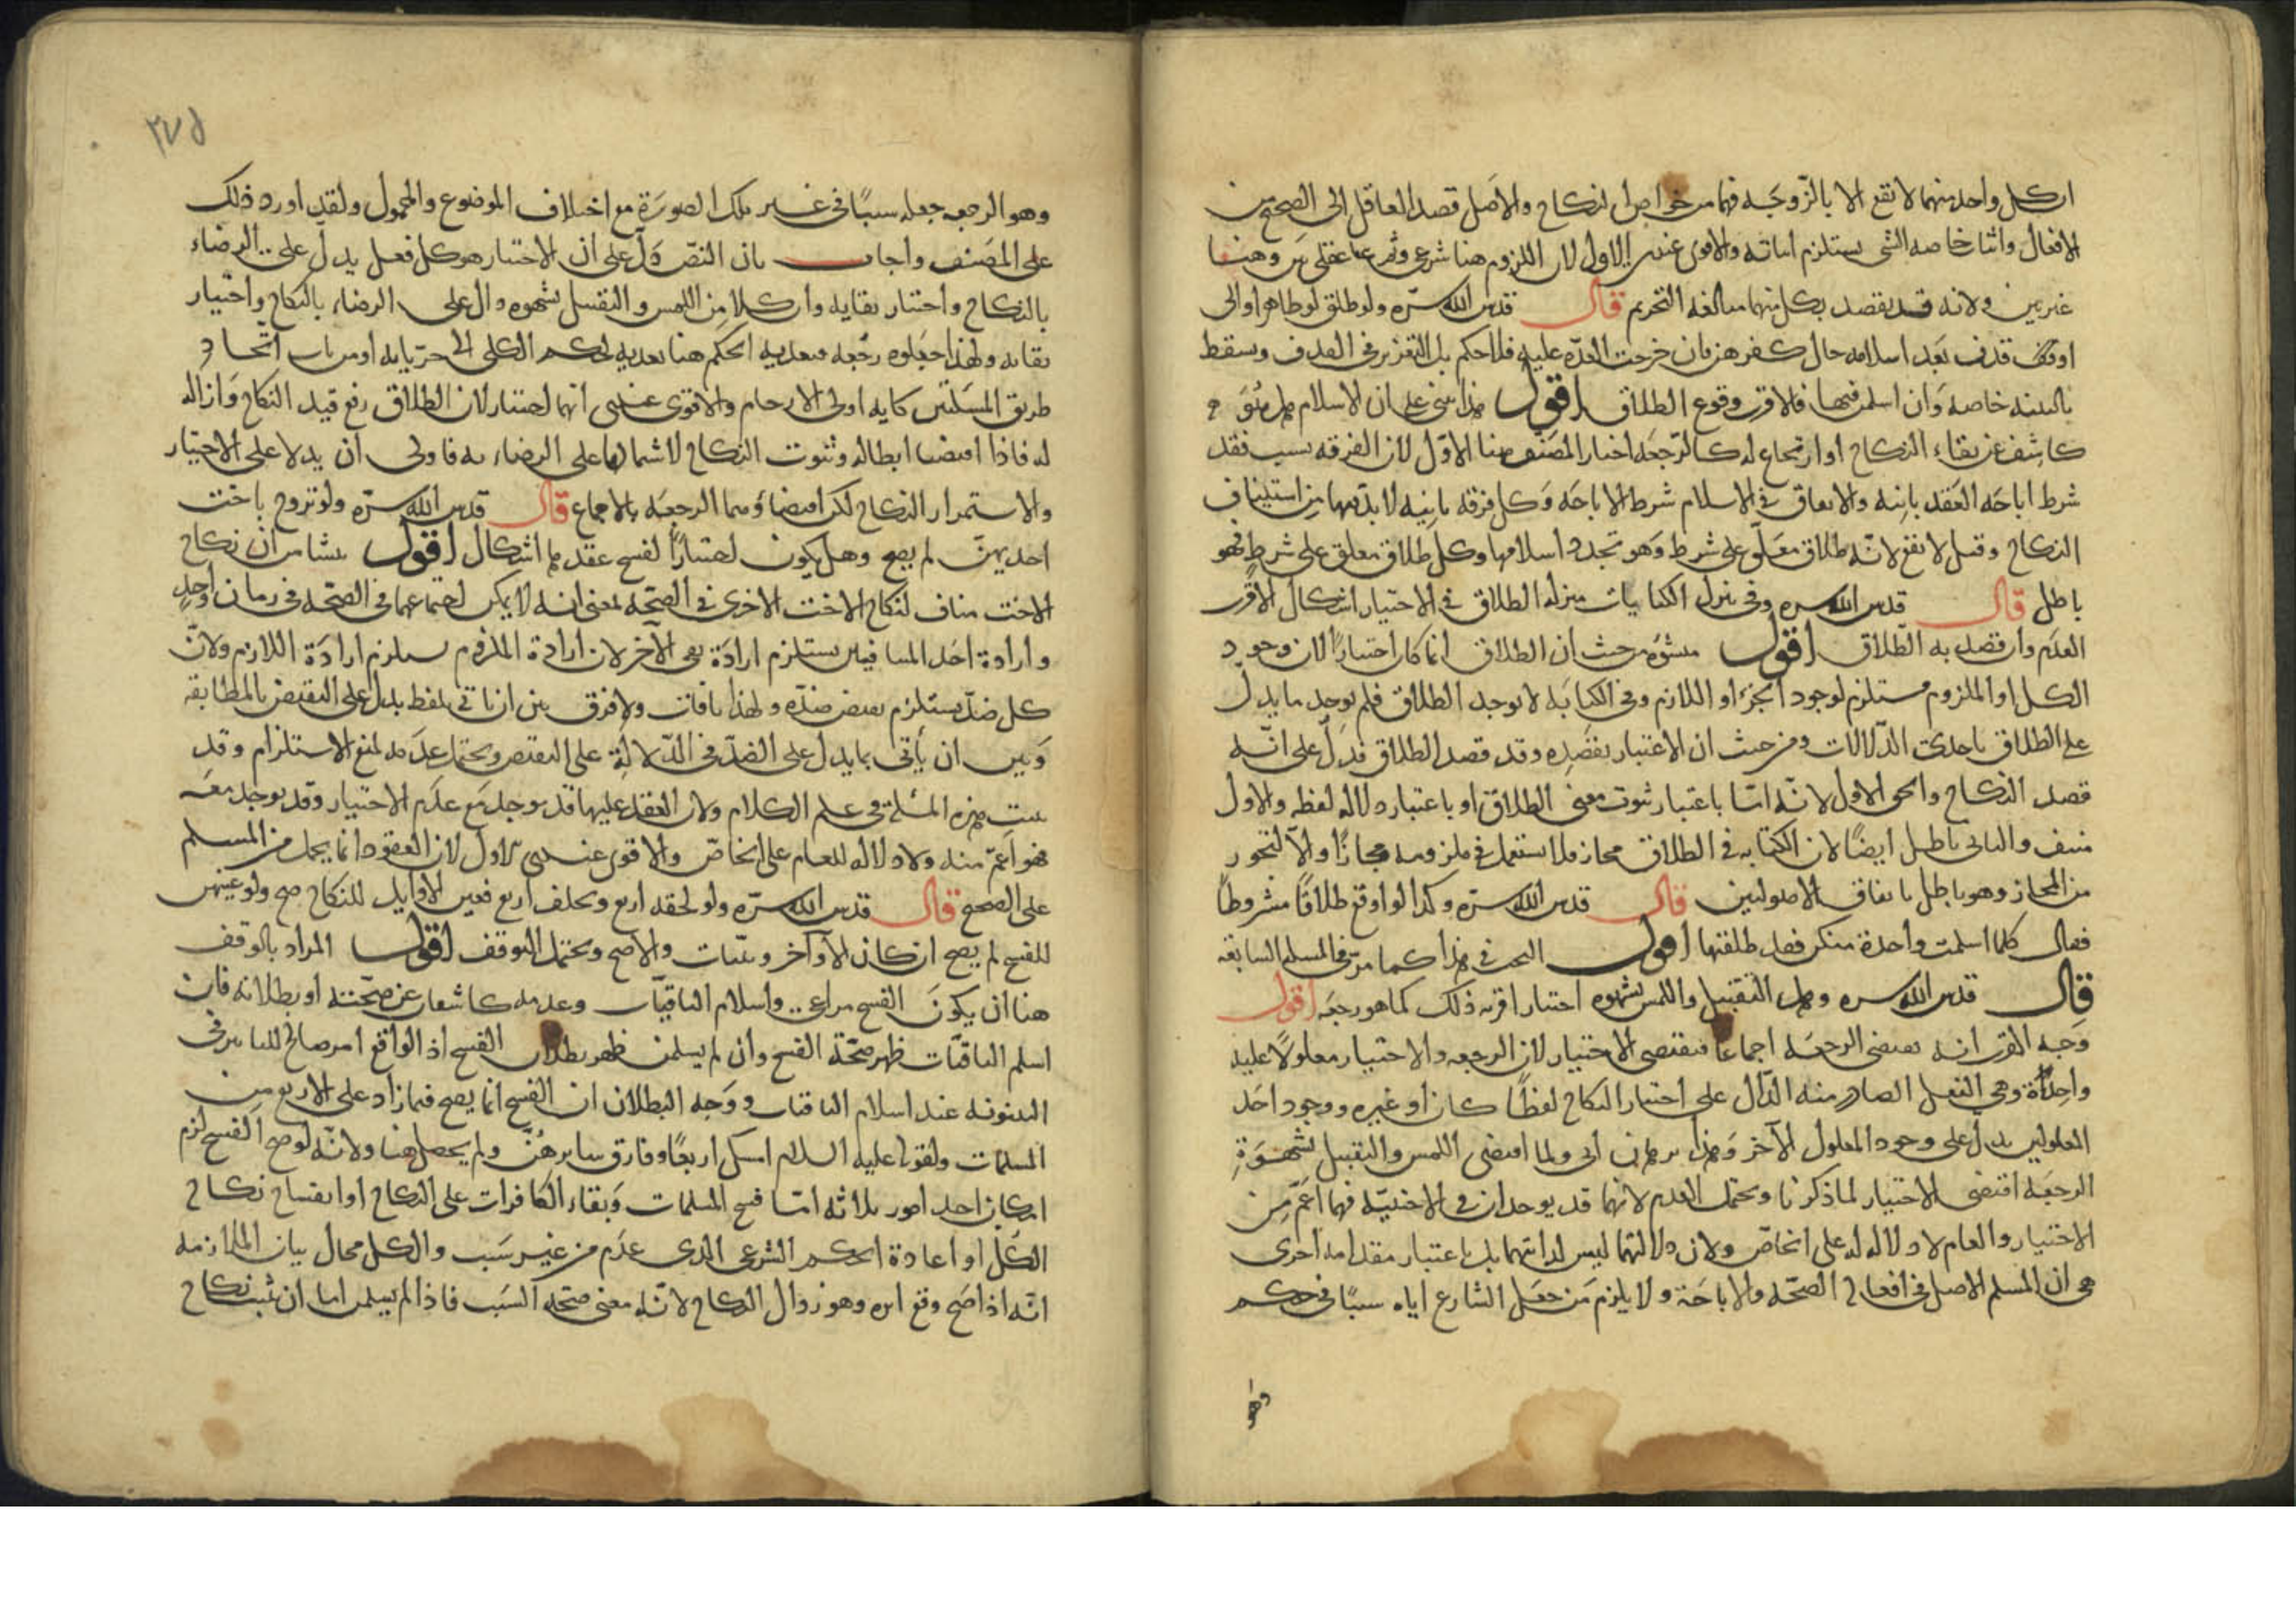 ان كل واحد منهما لا تقع الا بالزوجة فهما من خواص النكاح والاصل قصد العاقل الى الصحيح من
الافعال واثبات خاصة الشي يستلزم اثباته والاقوى عندي الاول لان اللزوم هنا شرعي وثم عقلي بين وهنا
غير بين ولانه قد يقصد بكل منهما مبالغة التحريم قال قدس الله سره ولو طلق او ظاهر او الى
او قذف بعد اسلامه حال كفرهن فان خرجت العدة عليه فلا حكم بل التعزير في القذف ويسقط
بالبينة خاصة وان اسلمن فيها فالاقرب وقوع الطلاق اقول هذا مبني على ان الاسلام هل هو
كاشف عن بقاء النكاح او ارتجاع له كالرجعة اختار المصنف هنا الاول لان الفرقة بسبب فقد
شرط اباحة العقد باينة والاتفاق في الاسلام شرط الاباحة وكل فرقة باينة لا بد معها من استيناف
النكاح وقيل لا تقع لانه طلاق معلق على شرط وهو تجدد اسلامها وكل طلاق معلق على شرط فهو
باطل قال قدس الله سره وفي تنزل الكنايات منزلة الطلاق في الاختيار اشكال الاقرب
العدم وان قصد به الطلاق اقول منشؤه من حيث ان الطلاق انما كان اختيارا لان وجود
الكل او الملزوم مستلزم لوجود الجزء او اللازم وفي الكناية لا يوجد الطلاق فلم يوجد ما يدل
على الطلاق باحدى الدلالات ومن حيث ان الاعتبار بقصده وقد قصد الطلاق فدل على انه
قصد النكاح والحق الاول لانه اما باعتبار ثبوت معنى الطلاق او باعتبار دلالة لفظه والاول
منتف والثاني باطل ايضا لان الكناية في الطلاق مجاز فلا تستعمل في ملزومه مجازا والا لتجوز
من المجاز وهو باطل باتفاق الاصوليين قال قدس الله سره وكذا لو اوقع طلاقا مشروطا
فقال كلما اسلمت واحدة منكن فقد طلقتها اقول البحث في هذا كما مر في المسلة السابقة
قال قدس الله سره وهل التقبيل واللمس بشهوة اختيار اقربه ذلك كما هو رجعة اقول
وجه القرب انه يقتضي الرجعة اجماعا فيقتضي الاختيار لان الرجعة والاختيار معلولا علية
واحدة وهي الفعل الصادر منه الدال على اختيار النكاح لفظا كان او غيره ووجود احد
المعلولين يدل على وجود المعلول الآخر وهذا برهان اني ولما اقتضى اللمس والتقبيل بشهوة
الرجعة اقتضى الاختيار لما ذكرنا ويحتمل العدم لانهما قد يوجدان في الاجنبية فهما اعم من
الاختيار والعام لا دلالة له على الخاص ولان دلالتهما ليس لذاتهما بل باعتبار مقدمة اخرى
هي ان المسلم الاصل في افعاله الصحة والاباحة ولا يلزم من جعل الشارع اياه سببا في حكم
وهو
٢٧٥
وهو الرجعة جعله سببا في غير تلك الصورة مع اختلاف الموضوع والمحمول ولقد اورد ذلك
على المصنف واجاب بان النص دل على ان الاختيار هو كل فعل يدل على الرضاء
بالنكاح واختيار بقايه وان كلا من اللمس والتقبيل بشهوة دال على الرضاء بالنكاح واختيار
بقايه ولهذا جعلوه رجعة فتعدية الحكم هنا تعدية لحكم الكلي الى جزئياته او من باب اتحاد
طريق المسلتين كاية اولى الارحام والاقوى عندي انهما اختيار لان الطلاق رفع قيد النكاح وازالة
له فاذا اقتضيا ابطاله وثبوت النكاح لاشمالهما على الرضاء به فاولى ان يدلا على الاختيار
والاستمرار النكاح لكن اقتضاؤهما الرجعة بالاجماع قال قدس الله سره ولو تزوج باخت
احديهن لم يصح وهل يكون اختيارا لفسخ عقدها اشكال اقول ينشا من ان نكاح
الاخت مناف لنكاح الاخت الاخرى في الصحة بمعنى انه لا يمكن اجتماعهما في الصحة في زمان واحد
وارادة احد المتنافيين يستلزم ارادة نفي الآخر لان ارادة الملزوم يستلزم ارادة اللازم ولان
كل ضد يستلزم نقيض ضده ولهذا نافاه ولا فرق بين ان ياتي بلفظ يدل على النقيض بالمطابقة
وبين ان يأتي بما يدل على الضد في الدلالة على النقيض ويحتمل عدمه لمنع الاستلزام وقد
بينت هذه المسئلة في علم الكلام ولان العقد عليها قد يوجد مع عدم الاختيار وقد يوجد معه
فهو اعم منه ولا دلالة للعام على الخاص والاقوى عندي الاول لان العقود انما يحمل من المسلم
على الصحيح قال قدس الله سره ولو لحقه اربع وتخلف اربع فعين الاوايل للنكاح صح ولو عينهن
للفسخ لم يصح ان كان الاواخر وثنيات والاصح ويحتمل التوقف اقول المراد بالوقف
هنا ان يكون الفسخ مراعى واسلام الباقيات وعدمه كاشفان عن صحته او بطلانه فان
اسلم الباقيات ظهر صحة الفسخ وان لم يسلمن ظهر بطلان الفسخ اذ الواقع امر صالح للتاثير في
البينونة عند اسلام الباقيات ووجه البطلان ان الفسخ انما يصح فيما زاد على الاربع من
المسلمات ولقوله عليه السلام امسك اربعا وفارق سايرهن ولم يحصل هنا ولانه لو صح الفسخ لزم
امكان احد امور ثلاثة اما فسخ المسلمات وبقاء الكافرات على النكاح او انفساخ نكاح
الكل او اعادة الحكم الشرعي الذي عدم من غير سبب والكل محال بيان الملازمة
انه اذا صح وقع اثره وهو زوال النكاح لانه معنى صحة السبب فاذا لم يسلمن اما ان يثبت نكاح